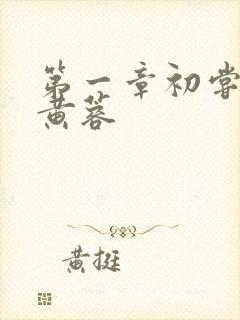 第一章初尝
黄蓉
黄挺